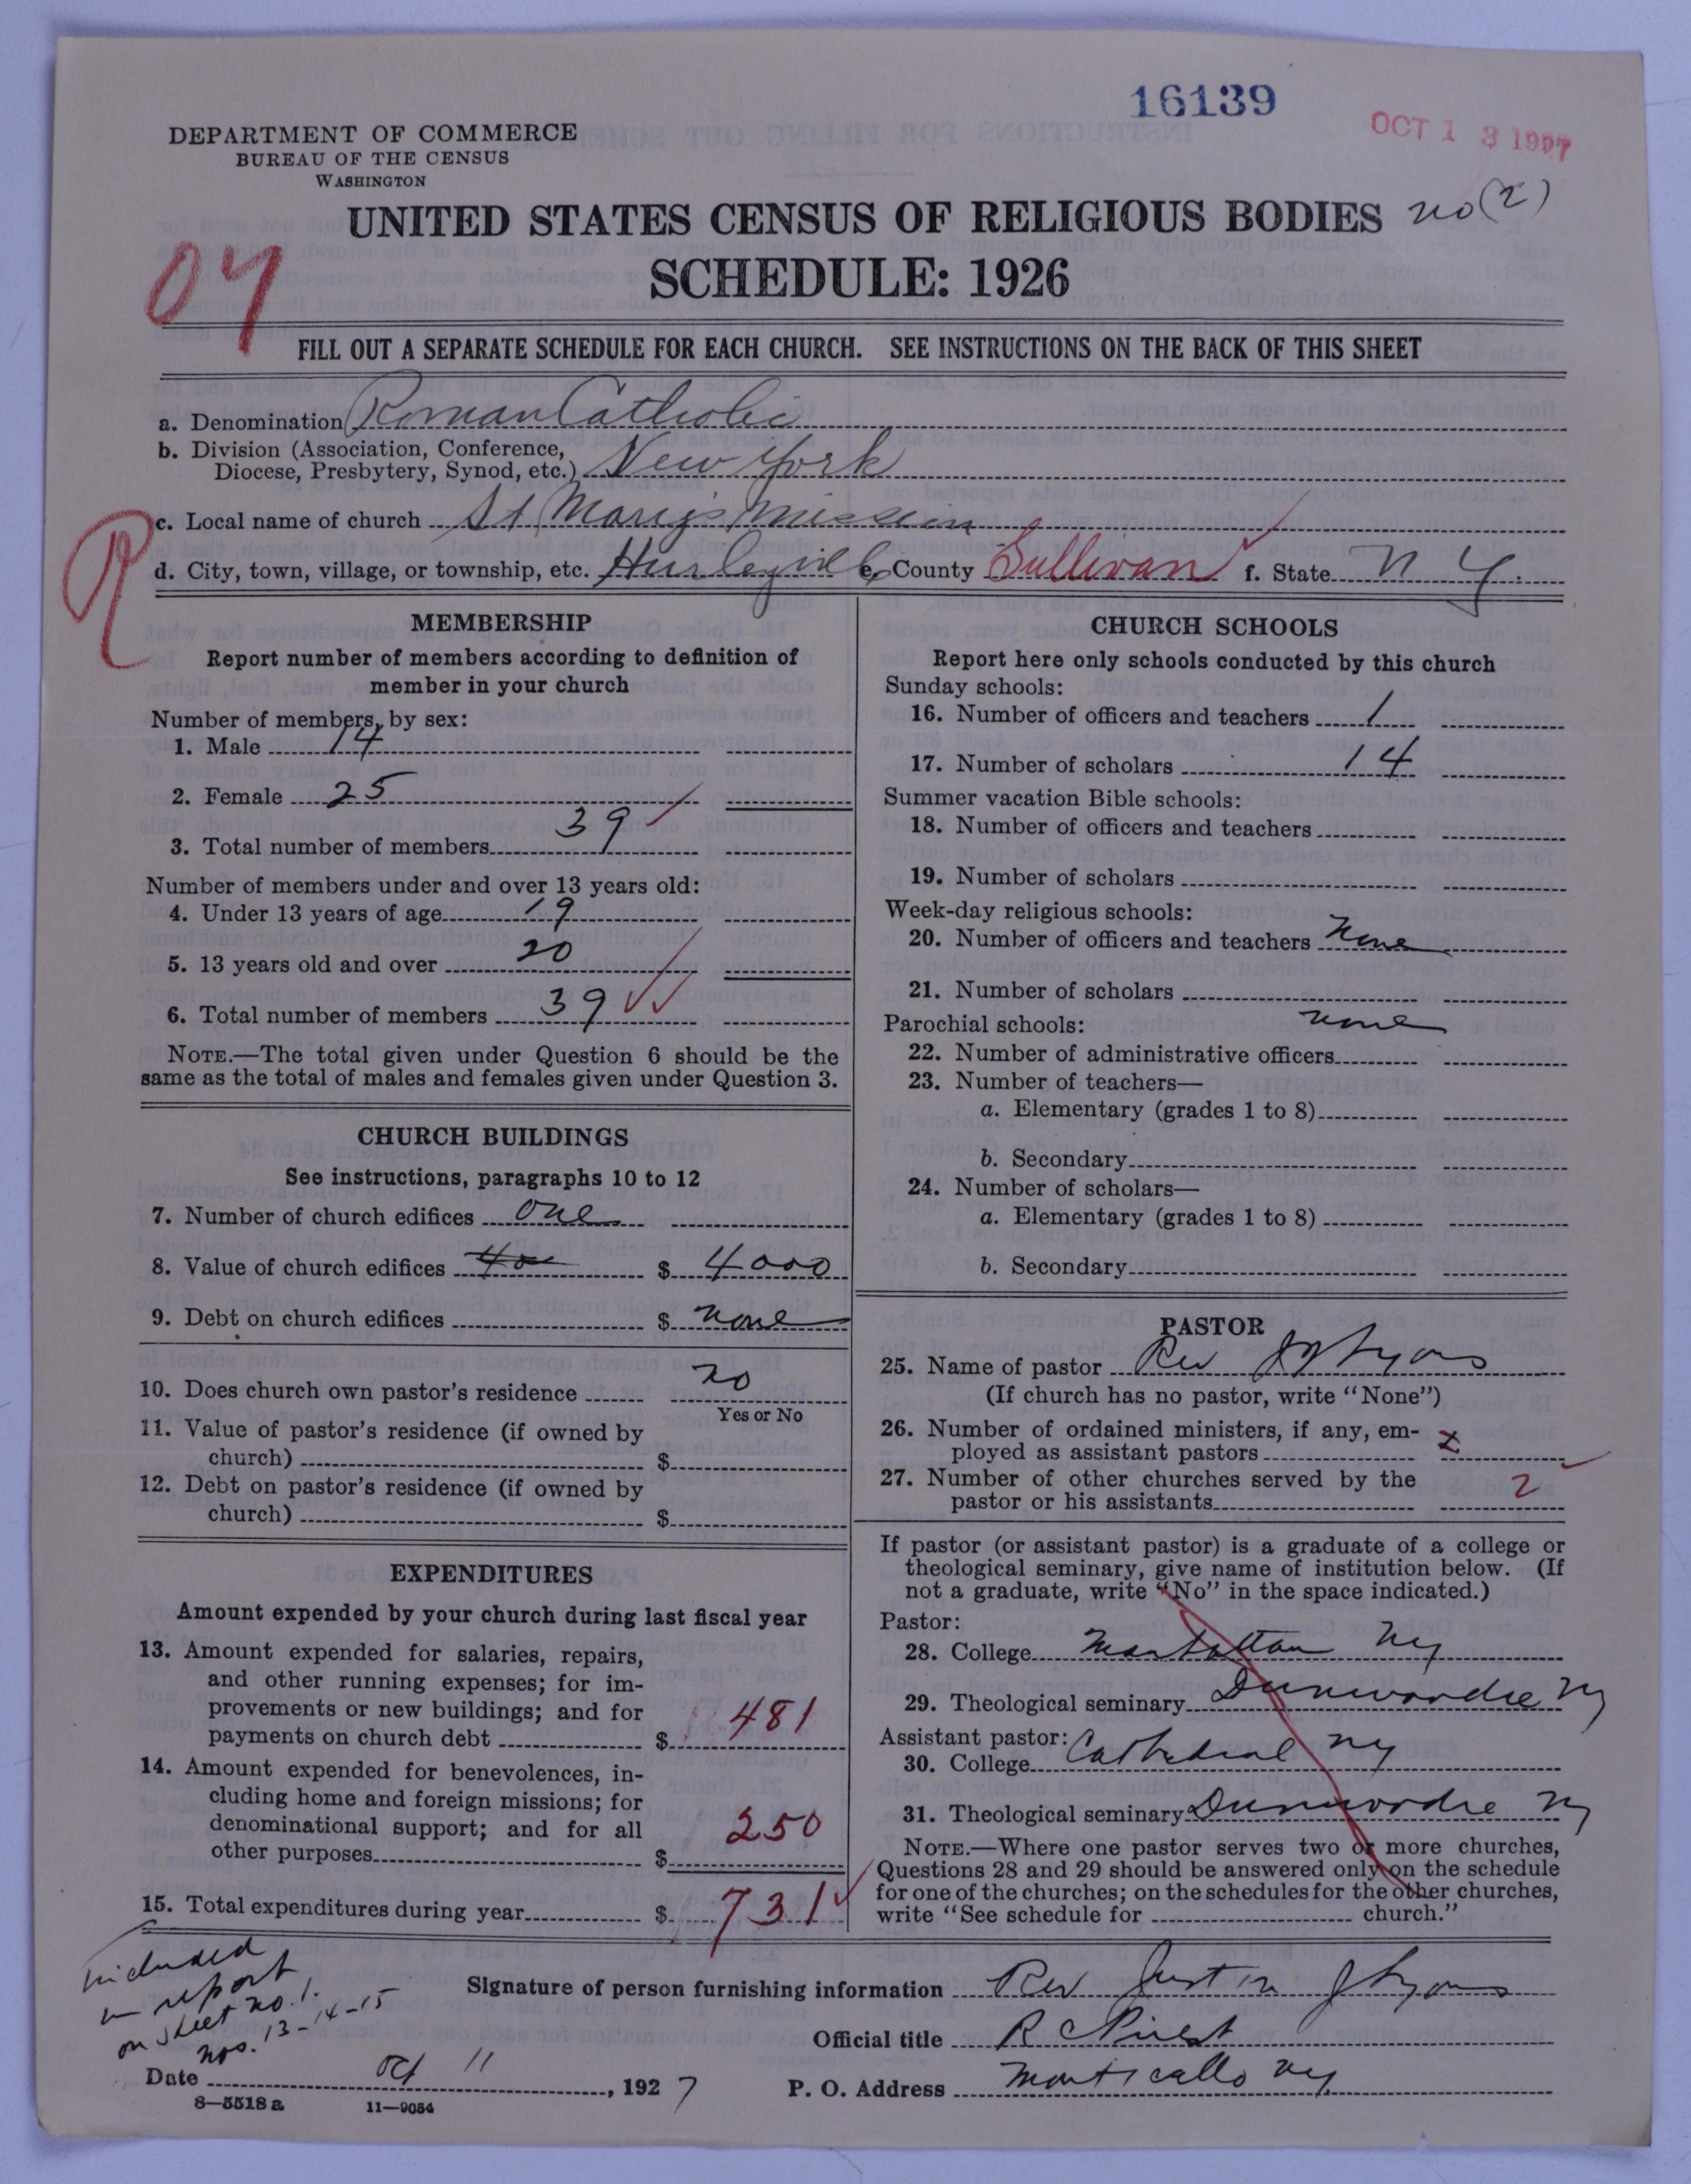 16139
OCT 13 1927
DEPARTMENT OF COMMERCE
BUREAU OF THE CENSUS
WASHINGTON
UNITED STATES CENSUS OF RELIGIOUS BODIES no (2)
SCHEDULE: 1926
04
FILL OUT A SEPARATE SCHEDULE FOR EACH CHURCH. SEE INSTRUCTIONS ON THE BACK OF THIS SHEET
a. Denomination Roman Catholic
b. Division (Association, Conference,
Diocese, Presbytery, Synod, etc.) New York
R
c. Local name of church St Mary's Mission
d. City, town, village, or township, etc. Hurleyville e. County Sullivan f. State N Y.
MEMBERSHIP
Report number of members according to definition of
member in your church
Number of members, by sex:
1. Male 14
2. Female 25
3. Total number of members 39
Number of members under and over 13 years old:
4. Under 13 years of age 19
5. 13 years old and over 20
6. Total number of members 39
NOTE.—The total given under Question 6 should be the
same as the total of males and females given under Question 3.
CHURCH BUILDINGS
See instructions, paragraphs 10 to 12
7. Number of church edifices one
8. Value of church edifices $ 4000
9. Debt on church edifices $ none
10. Does church own pastor's residence no
Yes or No
11. Value of pastor's residence (if owned by
church) $
12. Debt on pastor's residence (if owned by
church) $
EXPENDITURES
Amount expended by your church during last fiscal year
13. Amount expended for salaries, repairs,
and other running expenses; for im-
provements or new buildings; and for
payments on church debt $ 481
14. Amount expended for benevolences, in-
cluding home and foreign missions; for
denominational support; and for all
other purposes $ 250
15. Total expenditures during year $ 731
CHURCH SCHOOLS
Report here only schools conducted by this church
Sunday schools:
16. Number of officers and teachers 1
17. Number of scholars 14
Summer vacation Bible schools:
18. Number of officers and teachers
19. Number of scholars
Week-day religious schools:
20. Number of officers and teachers none
21. Number of scholars
Parochial schools: none
22. Number of administrative officers
23. Number of teachers—
a. Elementary (grades 1 to 8)
b. Secondary
24. Number of scholars—
a. Elementary (grades 1 to 8)
b. Secondary
PASTOR
25. Name of pastor Rev J Lyons
(If church has no pastor, write "None")
26. Number of ordained ministers, if any, em-
ployed as assistant pastors
27. Number of other churches served by the
pastor or his assistants 2
If pastor (or assistant pastor) is a graduate of a college or
theological seminary, give name of institution below. (If
not a graduate, write "No" in the space indicated.)
Pastor:
28. College Manhattan Ny
29. Theological seminary Dunwoodie Ny
Assistant pastor:
30. College Cathedral Ny
31. Theological seminary Dunwoodie Ny
NOTE.—Where one pastor serves two or more churches,
Questions 28 and 29 should be answered only on the schedule
for one of the churches; on the schedules for the other churches,
write "See schedule for church."
included
in report
on sheet no. 1.
nos. 13-14-15
Signature of person furnishing information Rev Justin J Lyons
Official title R C Priest
Date Oct 11, 1927 P. O. Address Monticello Ny
8—5518 a 11—9054